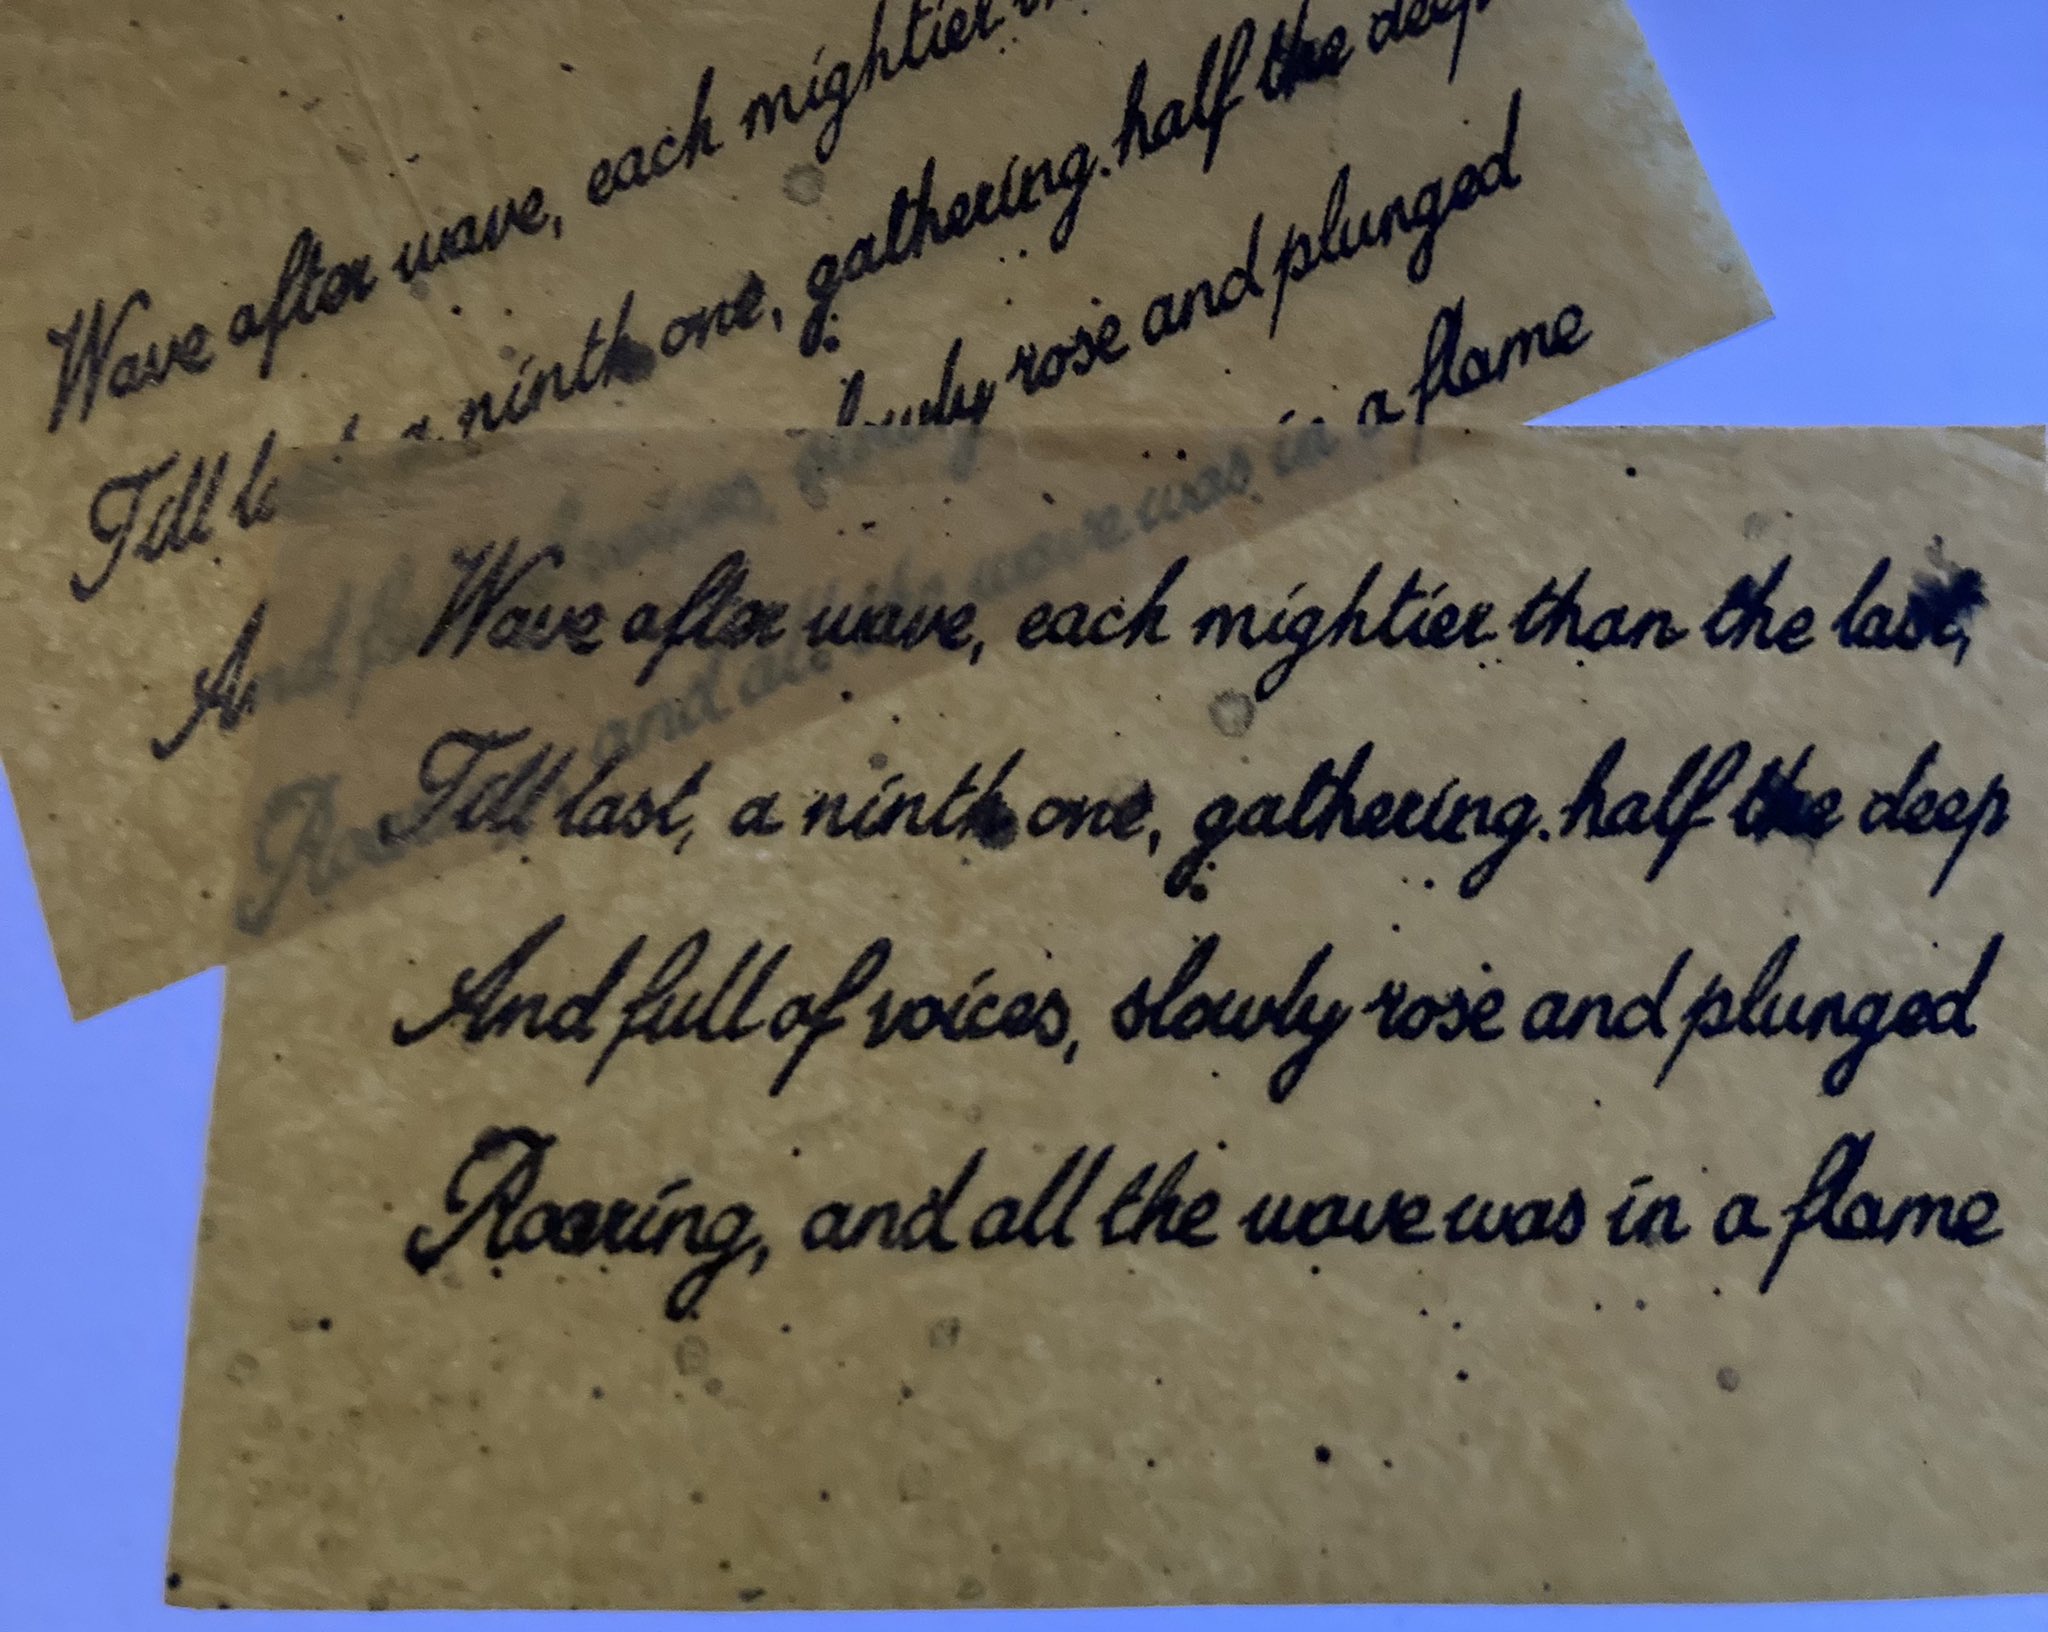 Wave after wave, each mightier
Till a ninth one, gathering. half the deep
And slowly rose and plunged
and all the wave was in a flame
Wave after wave, each mightier than the last,
Till last, a ninth one, gathering. half the deep
And full of voices, slowly rose and plunged
Roaring, and all the wave was in a flame